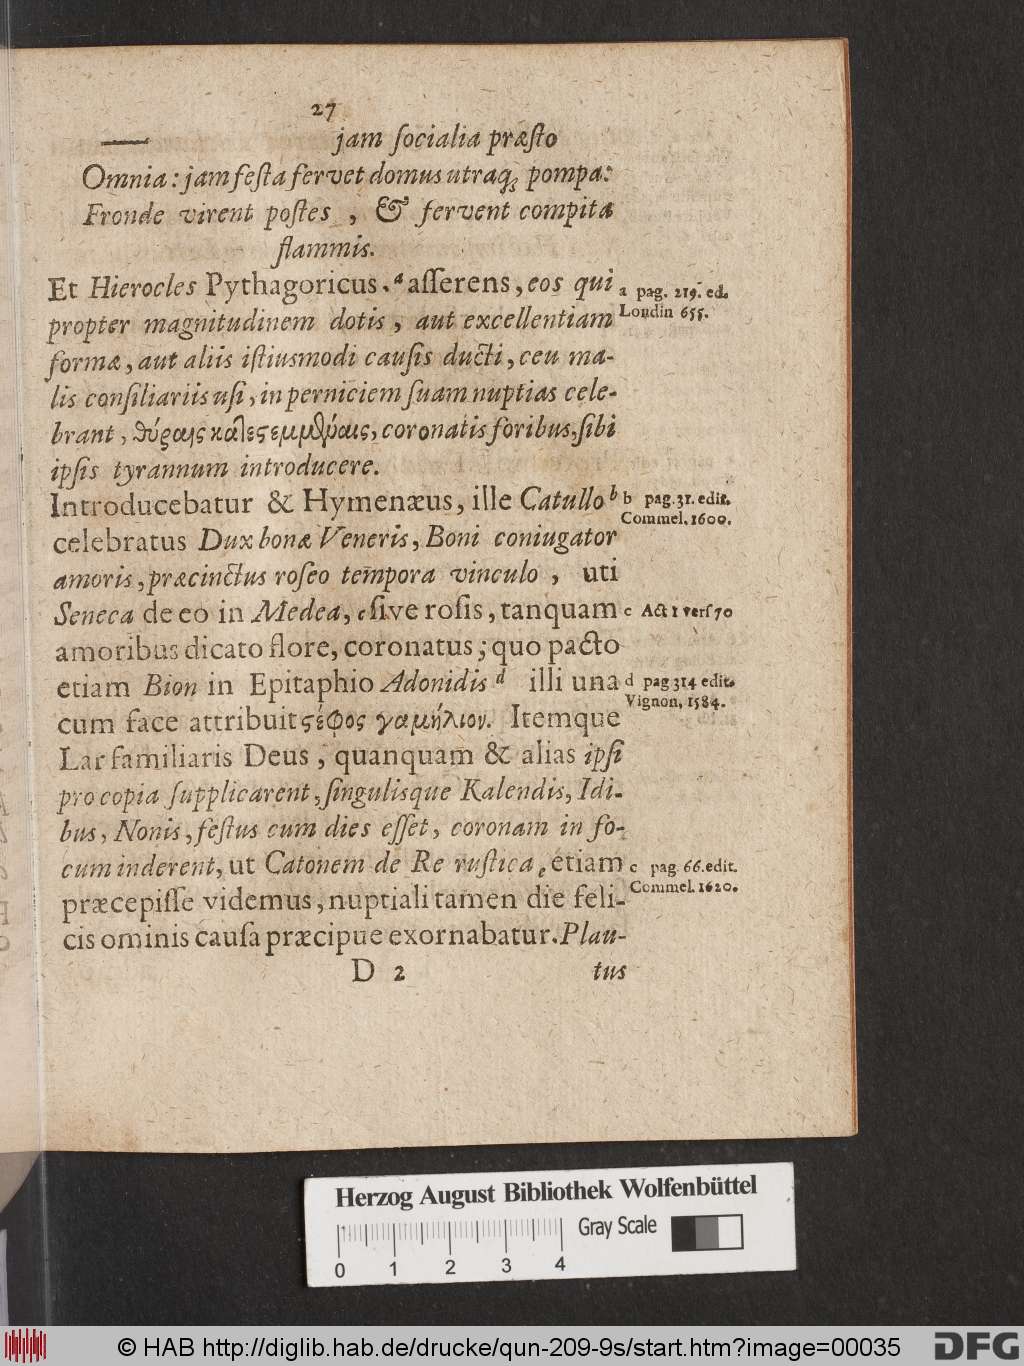 27
jam ſocialia præſto
Omnia: jam feſta fervet domus utraq; pompa:
Fronde virent poſtes, & fervent compita
flammis.
Et Hierocles Pythagoricus. a aſſerens, eos qui
a pag. 219. ed.
Londin 655.
propter magnitudinem dotis, aut excellentiam
formæ, aut aliis iſtiusmodi cauſis ducti, ceu ma-
lis conſiliariis uſi, in perniciem ſuam nuptias cele-
brant, coronatis foribus, ſibi
ipſis tyrannum introducere.
Introducebatur & Hymenæus, ille Catullo b
b pag. 31. edit.
Commel. 1600.
celebratus Dux bonæ Veneris, Boni coniugator
amoris, præcinctus roſeo tempora vinculo, uti
Seneca de eo in Medea, c ſive roſis, tanquam
c Act 1 verſ 70
amoribus dicato flore, coronatus; quo pacto
etiam Bion in Epitaphio Adonidis d illi una
d pag 314 edit.
Vignon, 1584.
cum face attribuit ϛέφος γαμήλιον. Itemque
Lar familiaris Deus, quanquam & alias ipſi
pro copia ſupplicarent, ſingulisque Kalendis, Idi-
bus, Nonis, feſtus cum dies eſſet, coronam in fo-
cum inderent, ut Catonem de Re ruſtica e etiam
e pag. 66. edit.
Commel. 1620.
præcepiſſe videmus, nuptiali tamen die feli-
cis ominis cauſa præcipue exornabatur. Plau-
D 2
tus
Herzog August Bibliothek Wolfenbüttel
Gray Scale
0 1 2 3 4
© HAB http://diglib.hab.de/drucke/qun-209-9s/start.htm?image=00035
DFG